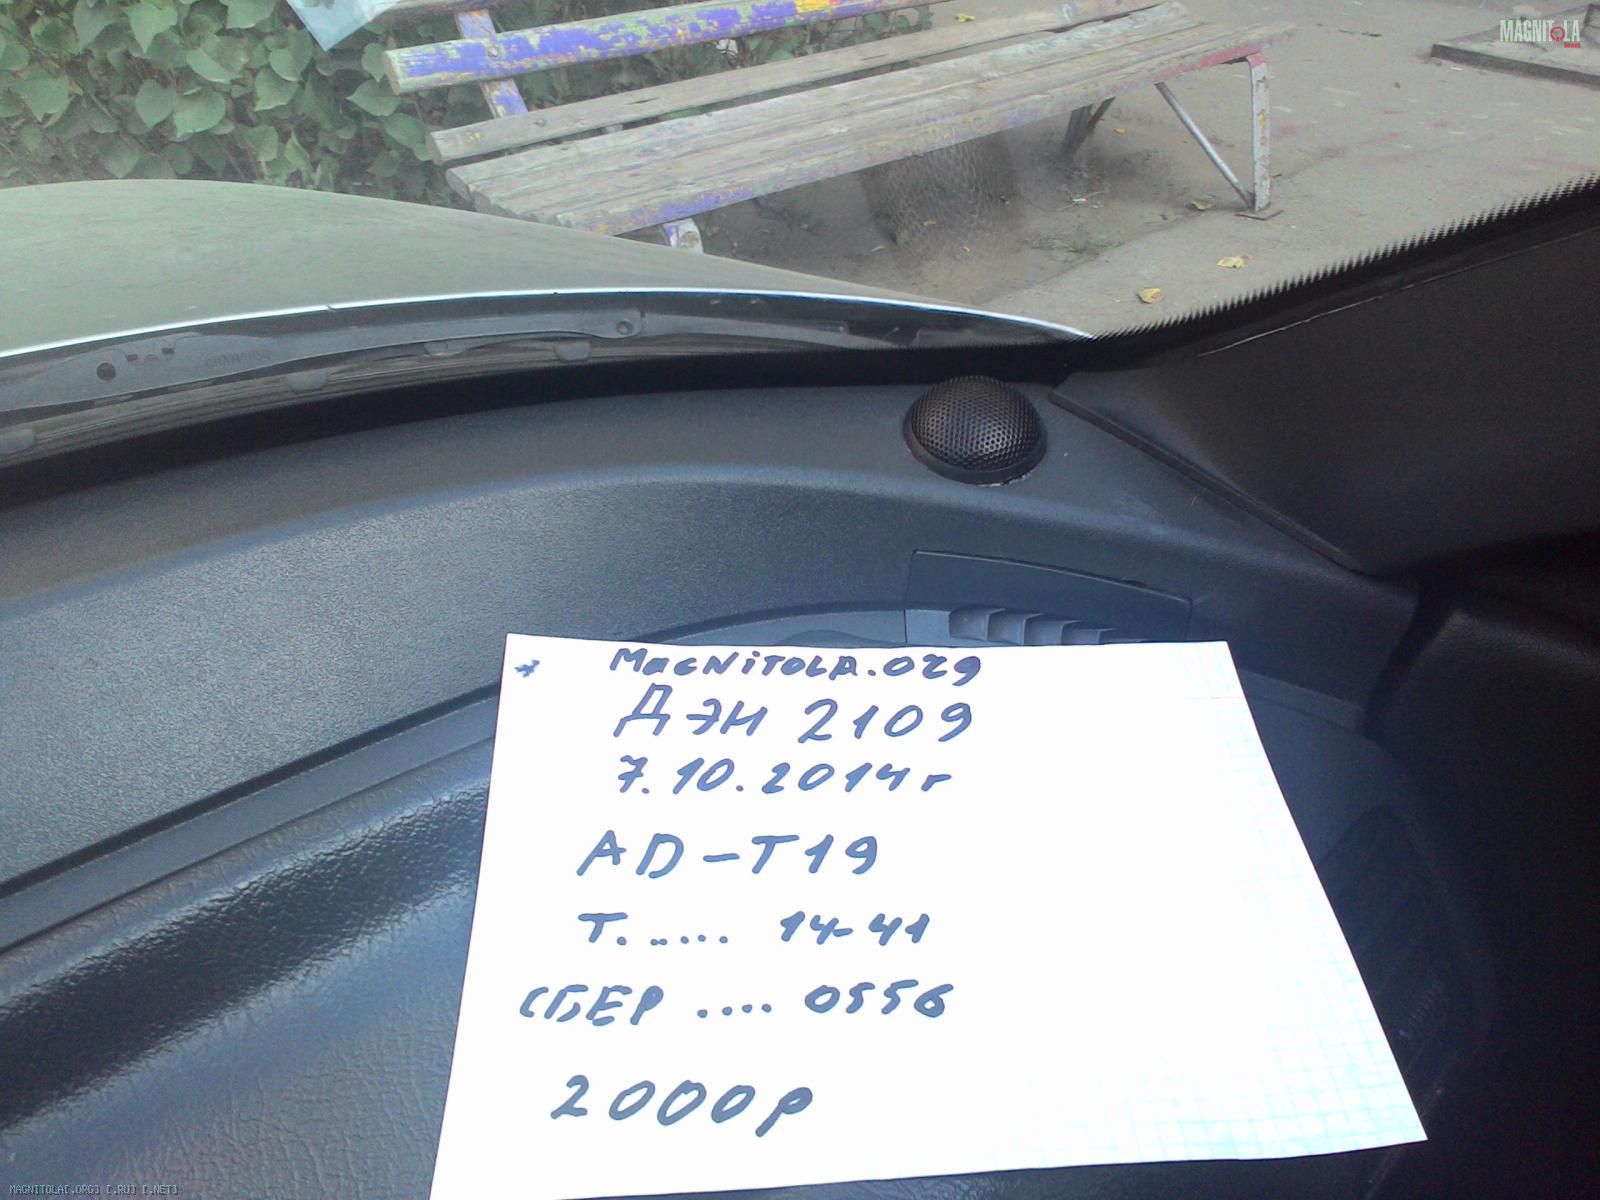 MAGNITOLA
team
MagNiTOLA.org
Дэн 2109
7.10.2014г
AD-T19
Т. ..... 14-41
СБЕР .... 0556
2000р
MAGNITOLA[.ORG] [.RU] [.NET]